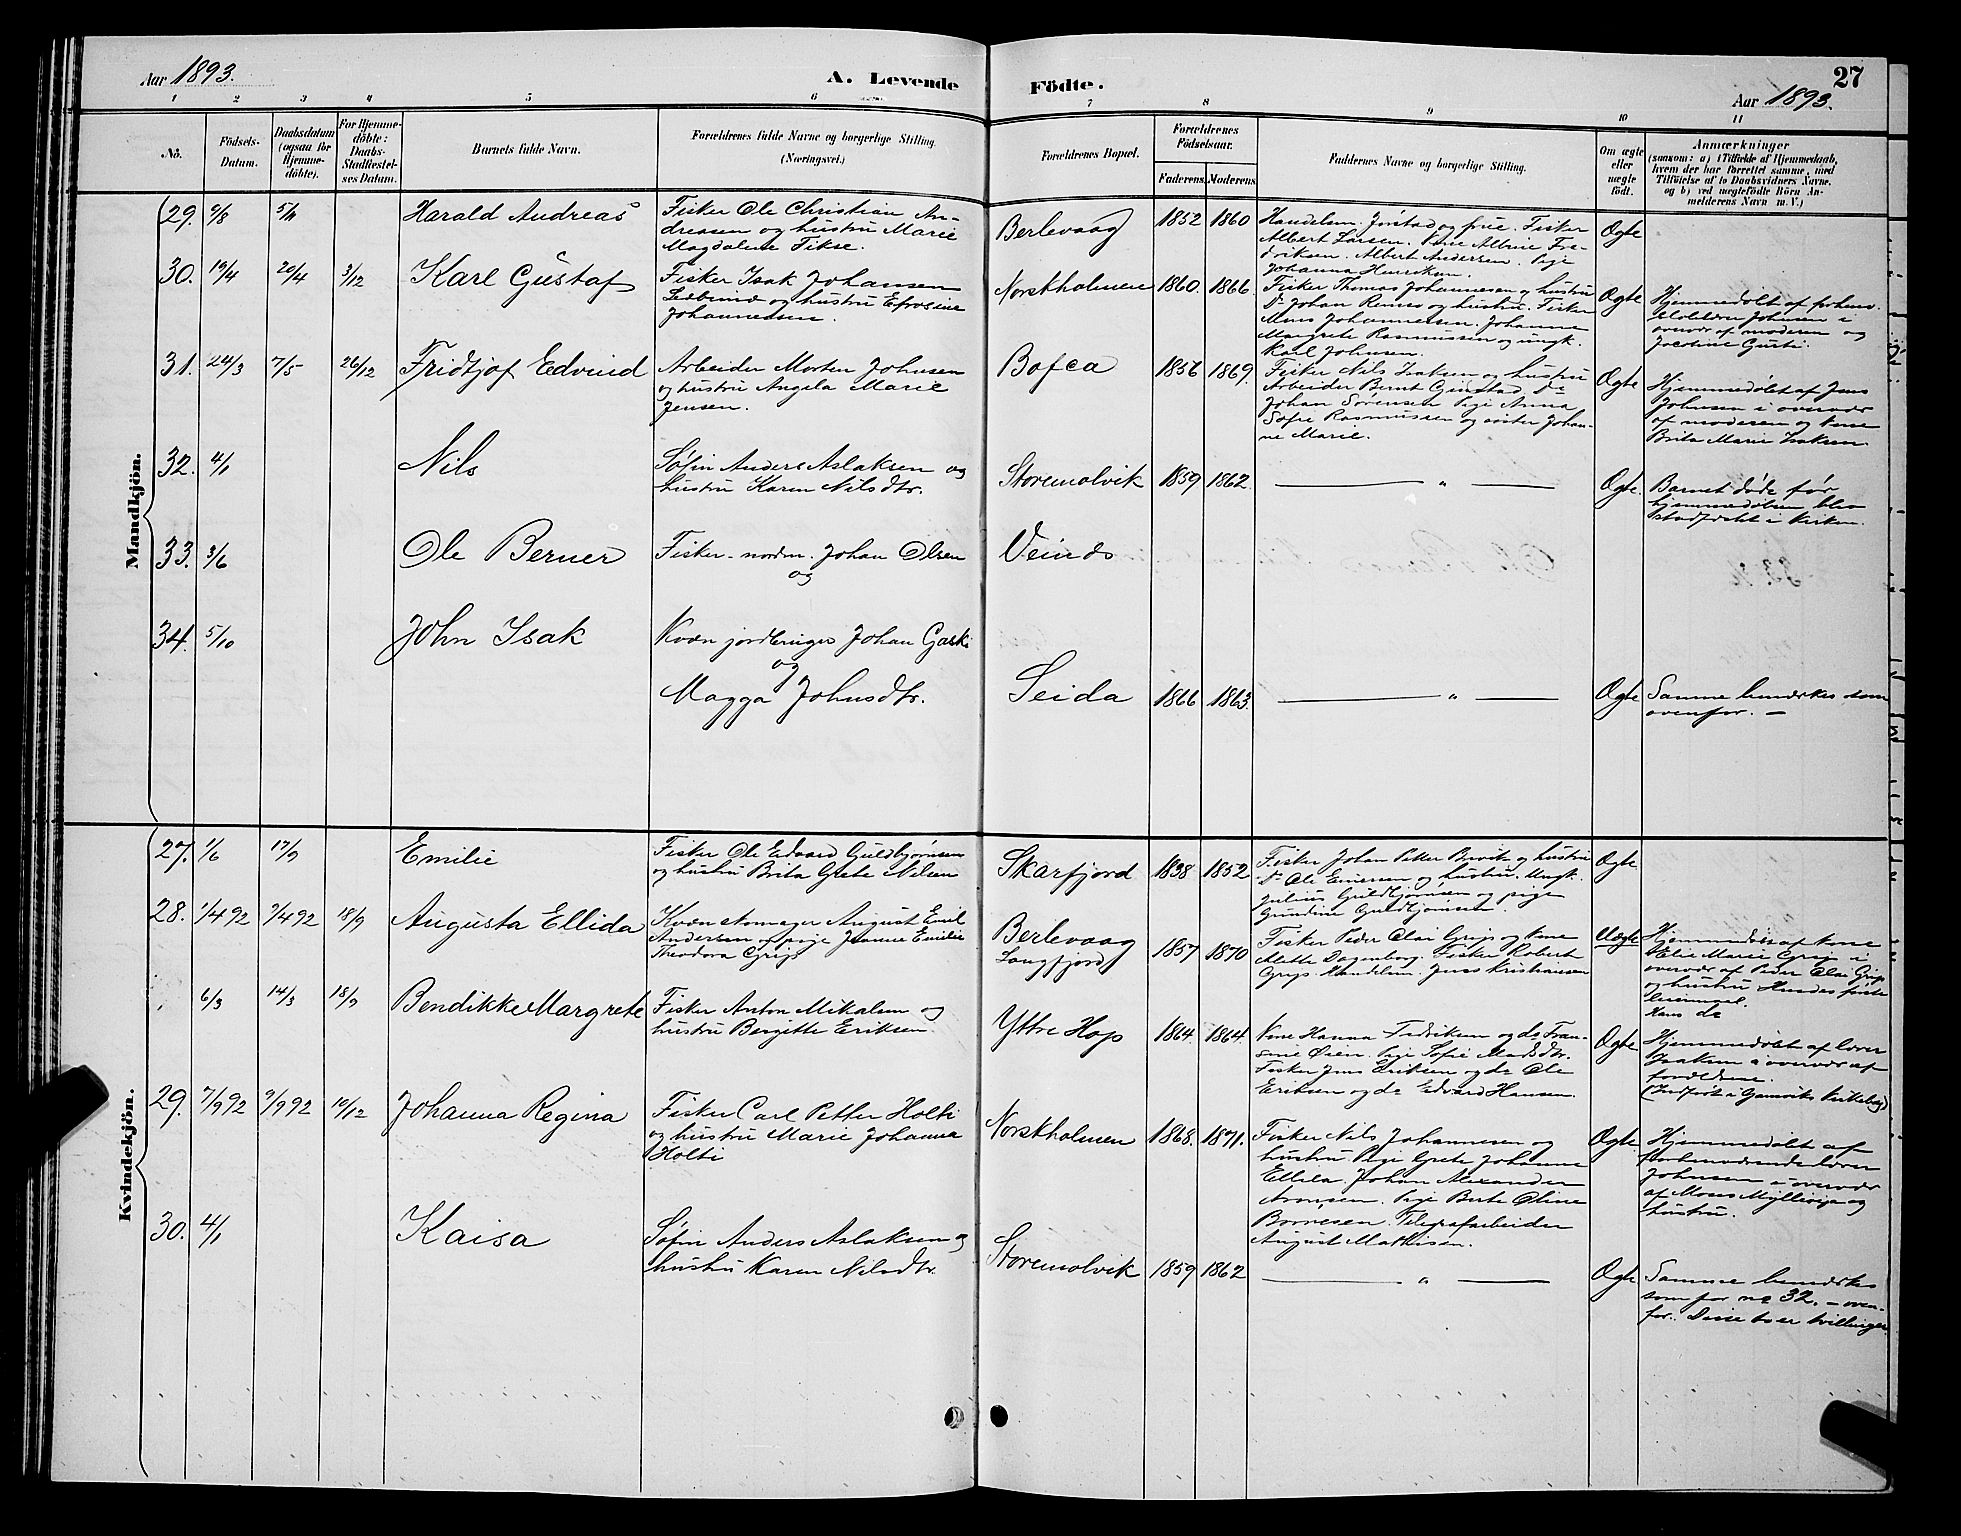 Aar 1893.
A. Levende Födte.
27
Aar 1893.
1 2 3 4 5 6 7 8 9 10 11
No.
Födsels-
Datum.
Daabsdatum
(ogsaa for
Hjemme-
döbte).
For Hjemme-
döbte:
Daabs-
Stadfæstel-
ses Datum.
Barnets fulde Navn.
Forældrenes fulde Navne og borgerlige Stilling.
(Næringsvei.)
Forældrenes Bopæl.
Forældrenes
Födselsaar.
Faderens. Moderens.
Faddernes Navne og borgerlige Stilling.
Om ægte
eller
uægte
födt.
Anmærkninger
(saasom: a) i Tilfælde af Hjemmedaab,
hvem der har forrettet samme, med
Tilföielse af to Daabsvidners Navne,
og b) ved uægtefödte Börn An-
melderens Navn m. V.)
Mandkjön.
29.
Harald Andreas
Fisker Ole Christian An-
dreasen og hustru Marie
Magdalene Fikse.
Berlevaag
1852 1860
Handelsm. Jørstad og frue. Fisker
Albert Larsen. Kone Albine Fre-
driksen. Albert Andersen. Pige
Johanna Henriksen.
Ægte
30. 19/4 20/4 3/12
Karl Gustaf
Fisker Isak Johansen
og hustru Efrosine
Johannesen.
Norskholmen
1860. 1866.
Fisker Thomas Johannesen og hustru
Do Johan og hustru. Fisker
Mons Johannesen. Johanne
Margrete Rasmussen og ungk.
Karl Johnsen.
Ægte
Hjemmedøbt af forhenv.
Johnsen i
overvær af moderen og
Jacobine
31. 24/3 7/5 26/12
Fridtjof Edvind
Arbeider Morten Johnsen
og hustru Angela Marie
Jensen.
Bofca
1856 1869.
Fisker Nils Isaksen og hustru
Arbeider Bernt Do
Johan Sørensen Pige Anna
Sofie Rasmussen og søster Johan-
ne Marie.
Ægte
Hjemmedøbt af Jens
Johnsen i overvær
af moderen og kone
Brita Marie Isaksen.
32. 4/1
Nils
Søfin Anders Aslaksen og
hustru Karen Nilsdtr.
Storemolvik
1859 1862.
— " —
Ægte.
Barnet døde før
hjemmedøben blev
stadfæstet i kirken.
33. 3/6
Ole Berner
Fisker - nordm. Johan Olsen
og
Veines
34. 5/10
John Isak
Kvæn jordbruger Johan
og
Magga Johnsdtr.
Seida
1866 1863.
— " —
Ægte
Samme bemærkes som
ovenfor. —
Kvindekjön.
27. 1/6 17/9
Emilie
Fisker Ole Edvard Guldbjørnsen
og hustru Brita Grete Nilsen
Skarfjord
1838 1852
Fisker Johan Petter og hustru
Do Ole og hustru. Ungk.
Julius Guldbjørnsen og pige
Gundine Guldbjørnsen.
Ægte
28. 1/4 92 9/4 92 18/9
Augusta Ellida
Kvæn skomager August Emil
Andersen og pige Jeanne Emilie
Theodora Grip
Berlevaag
Langfjord
1857 1870
Fisker Peder Olai Grip og kone
Mette Dagenborg. Fisker Robert
Grip. Handelsm. Jens Kristiansen
Uægte
Hjemmedøbt af kone
Elie Marie Grip i
overvær af Peder Olai Grip
og hustru Hendes første
leiermaal.
Hans do
6/3 14/3 18/9
Bendikke Margrete
Fisker Anton Mikalsen og
hustru Bergitte Eriksen.
Yttre Hop
1864. 1864.
Kone Hanna Fredriksen og do Fran-
sine Øien. Pige Sofie Madsdtr.
Fisker Jens Eriksen og do Ole
Eriksen og do Edvard Hansen.
Ægte
Hjemmedøbt af lærer
Isaksen i overvær af
forældrene.
(Indført i Gamviks kirkebog)
29. 7/9 92 9/9 92 10/12
Johanna Regina
Fisker Carl Petter Holti
og hustru Marie Johanna
Holti
Norskholmen
1868. 1871.
Fisker Nils Johannesen og
hustru. Pige Grete Johanne
Johan Alexander
Aronsen. Pige Berte Oline
Bornesen. Telegrafarbeider
August Mathisen.
Ægte
Hjemmedøbt af
forhenværende lærer
Johnsen i overvær
af Moses og
hustru.
30. 4/1
Kaisa
Søfin Anders Aslaksen og
hustru Karen Nilsdtr.
Storemolvik
1859 1862
— " —
Ægte
Samme bemærkes
som for no 32. - oven-
for. Disse to er tvillinger.